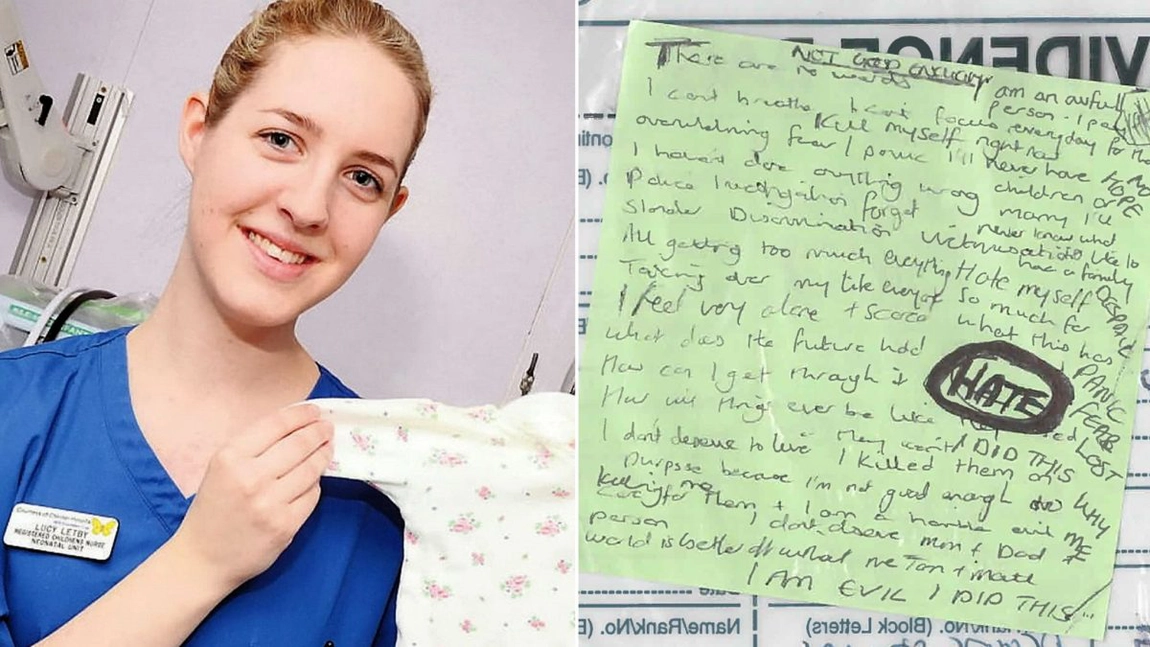 Countess of Chester Hospital
LUCY LETBY
REGISTERED CHILDRENS NURSE
NEONATAL UNIT
VIDENCE
NOT GOOD ENOUGH
There are no words
I am an awful person. I pay
I can't breathe I can't focus everyday for that
Kill myself right now
overwhelming fear I panic I'll never have
NO HOPE
I haven't done anything wrong children or marry I'll
Police investigation forget never know what
Slander Discrimination Victimisation like to
have a family
All getting too much everything Hate myself
DESPAIR
Taking over my life everyone so much for
I feel very alone + scared what this has
What does the future hold
HATE
PANIC
FEAR
LOST
How can I get through it
How will things ever be like
I DID THIS
I don't deserve to live. I killed them on
purpose because I'm not good enough
WHY
ME
care for them + I am a horrible evil
person I don't deserve mum + Dad
world is better off without me
I AM EVIL I DID THIS
Name/Rank/No.
Rank/No. (Block Letters)